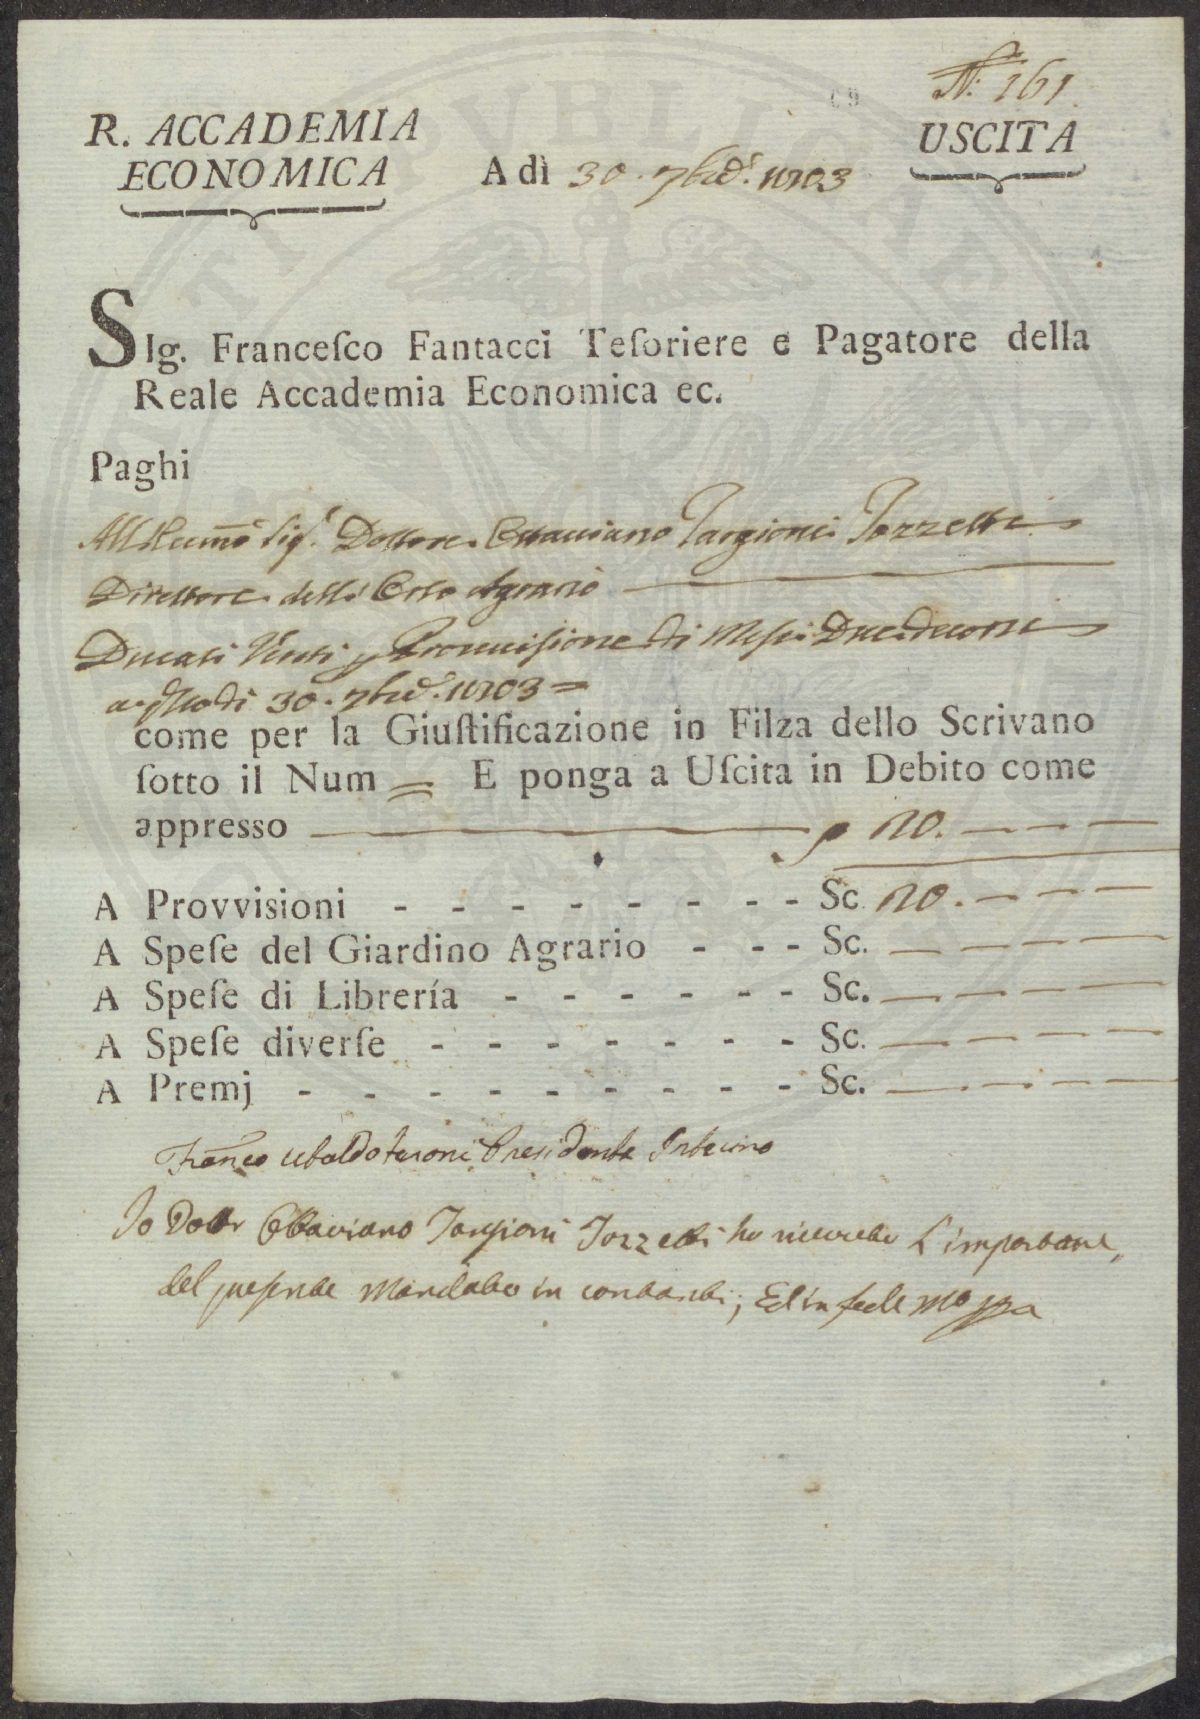 N: 161.
R. ACCADEMIA
ECONOMICA
A dì 30. 7bre 1803
USCITA
SIg. Franceſco Fantacci Teſoriere e Pagatore della
Reale Accademia Economica ec.
Paghi
All'Illmo Sig. Dottore Ottaviano Targioni Tozzetti
Direttore dell' Orto Agrario
Ducati Venti p Provvisione di Mesi Due decorsi
a tto dì 30. 7bre 1803 =
come per la Giuſtificazione in Filza dello Scrivano
ſotto il Num = E ponga a Uſcita in Debito come
appresso 20. — — —
A Provvisioni - - - - - - - - Sc. 20. — — —
A Speſe del Giardino Agrario - - - Sc. — — — —
A Speſe di Librería - - - - - - Sc. — — — —
A Speſe diverſe - - - - - - - Sc. — — — —
A Premj - - - - - - - - - Sc. — — — —
Franco Ubaldo Feroni Presidente Interino
Io Dottr Ottaviano Targioni Tozzetti ho ricevuto L'importare
del presente Mandato in contanti; Ed in fede Mo ppa